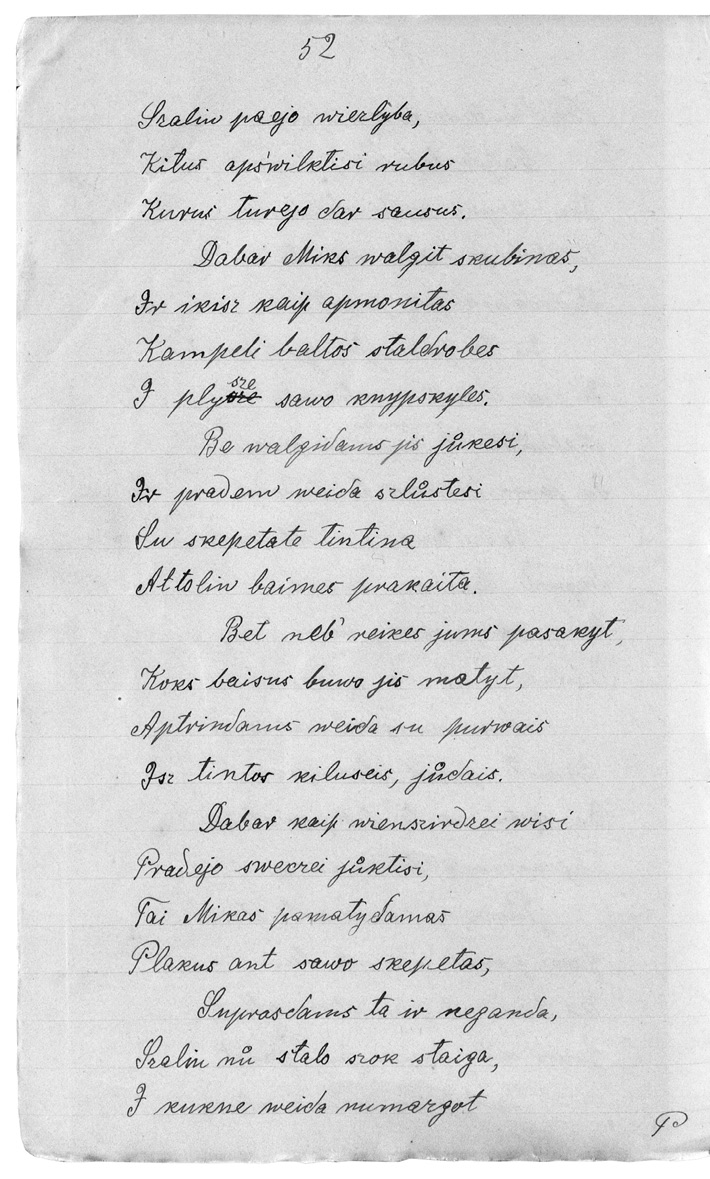 52
Szalin paejo wiezlyba,
Kitus apświlktisi rubus
Kurus turejo dar sausus.
Dabar Miks walgit skubinas,
Ir ikisz kaip apmonitas
Kampeli baltos staldrobes
I plysze sawo knypskyles.
Be walgidams jis jůkesi,
Ir pradem weida szlůstesi
Su skepetate tintina
Attolin baimes prakaita.
Bet neb' reikes jums pasakyt,
Koks baisus buwo jis matyt,
Aptrindams weida su purwais
Isz tintos kiluseis, jůdais.
Dabar kaip wienszirdzei wisi
Pradejo sweczei jůktisi,
Tai Mikas pamatydamas
Plakus ant sawo skepetas,
Suprasdams ta ir neganda,
Szalin nů stalo szok staiga,
I kukne weida numazgot